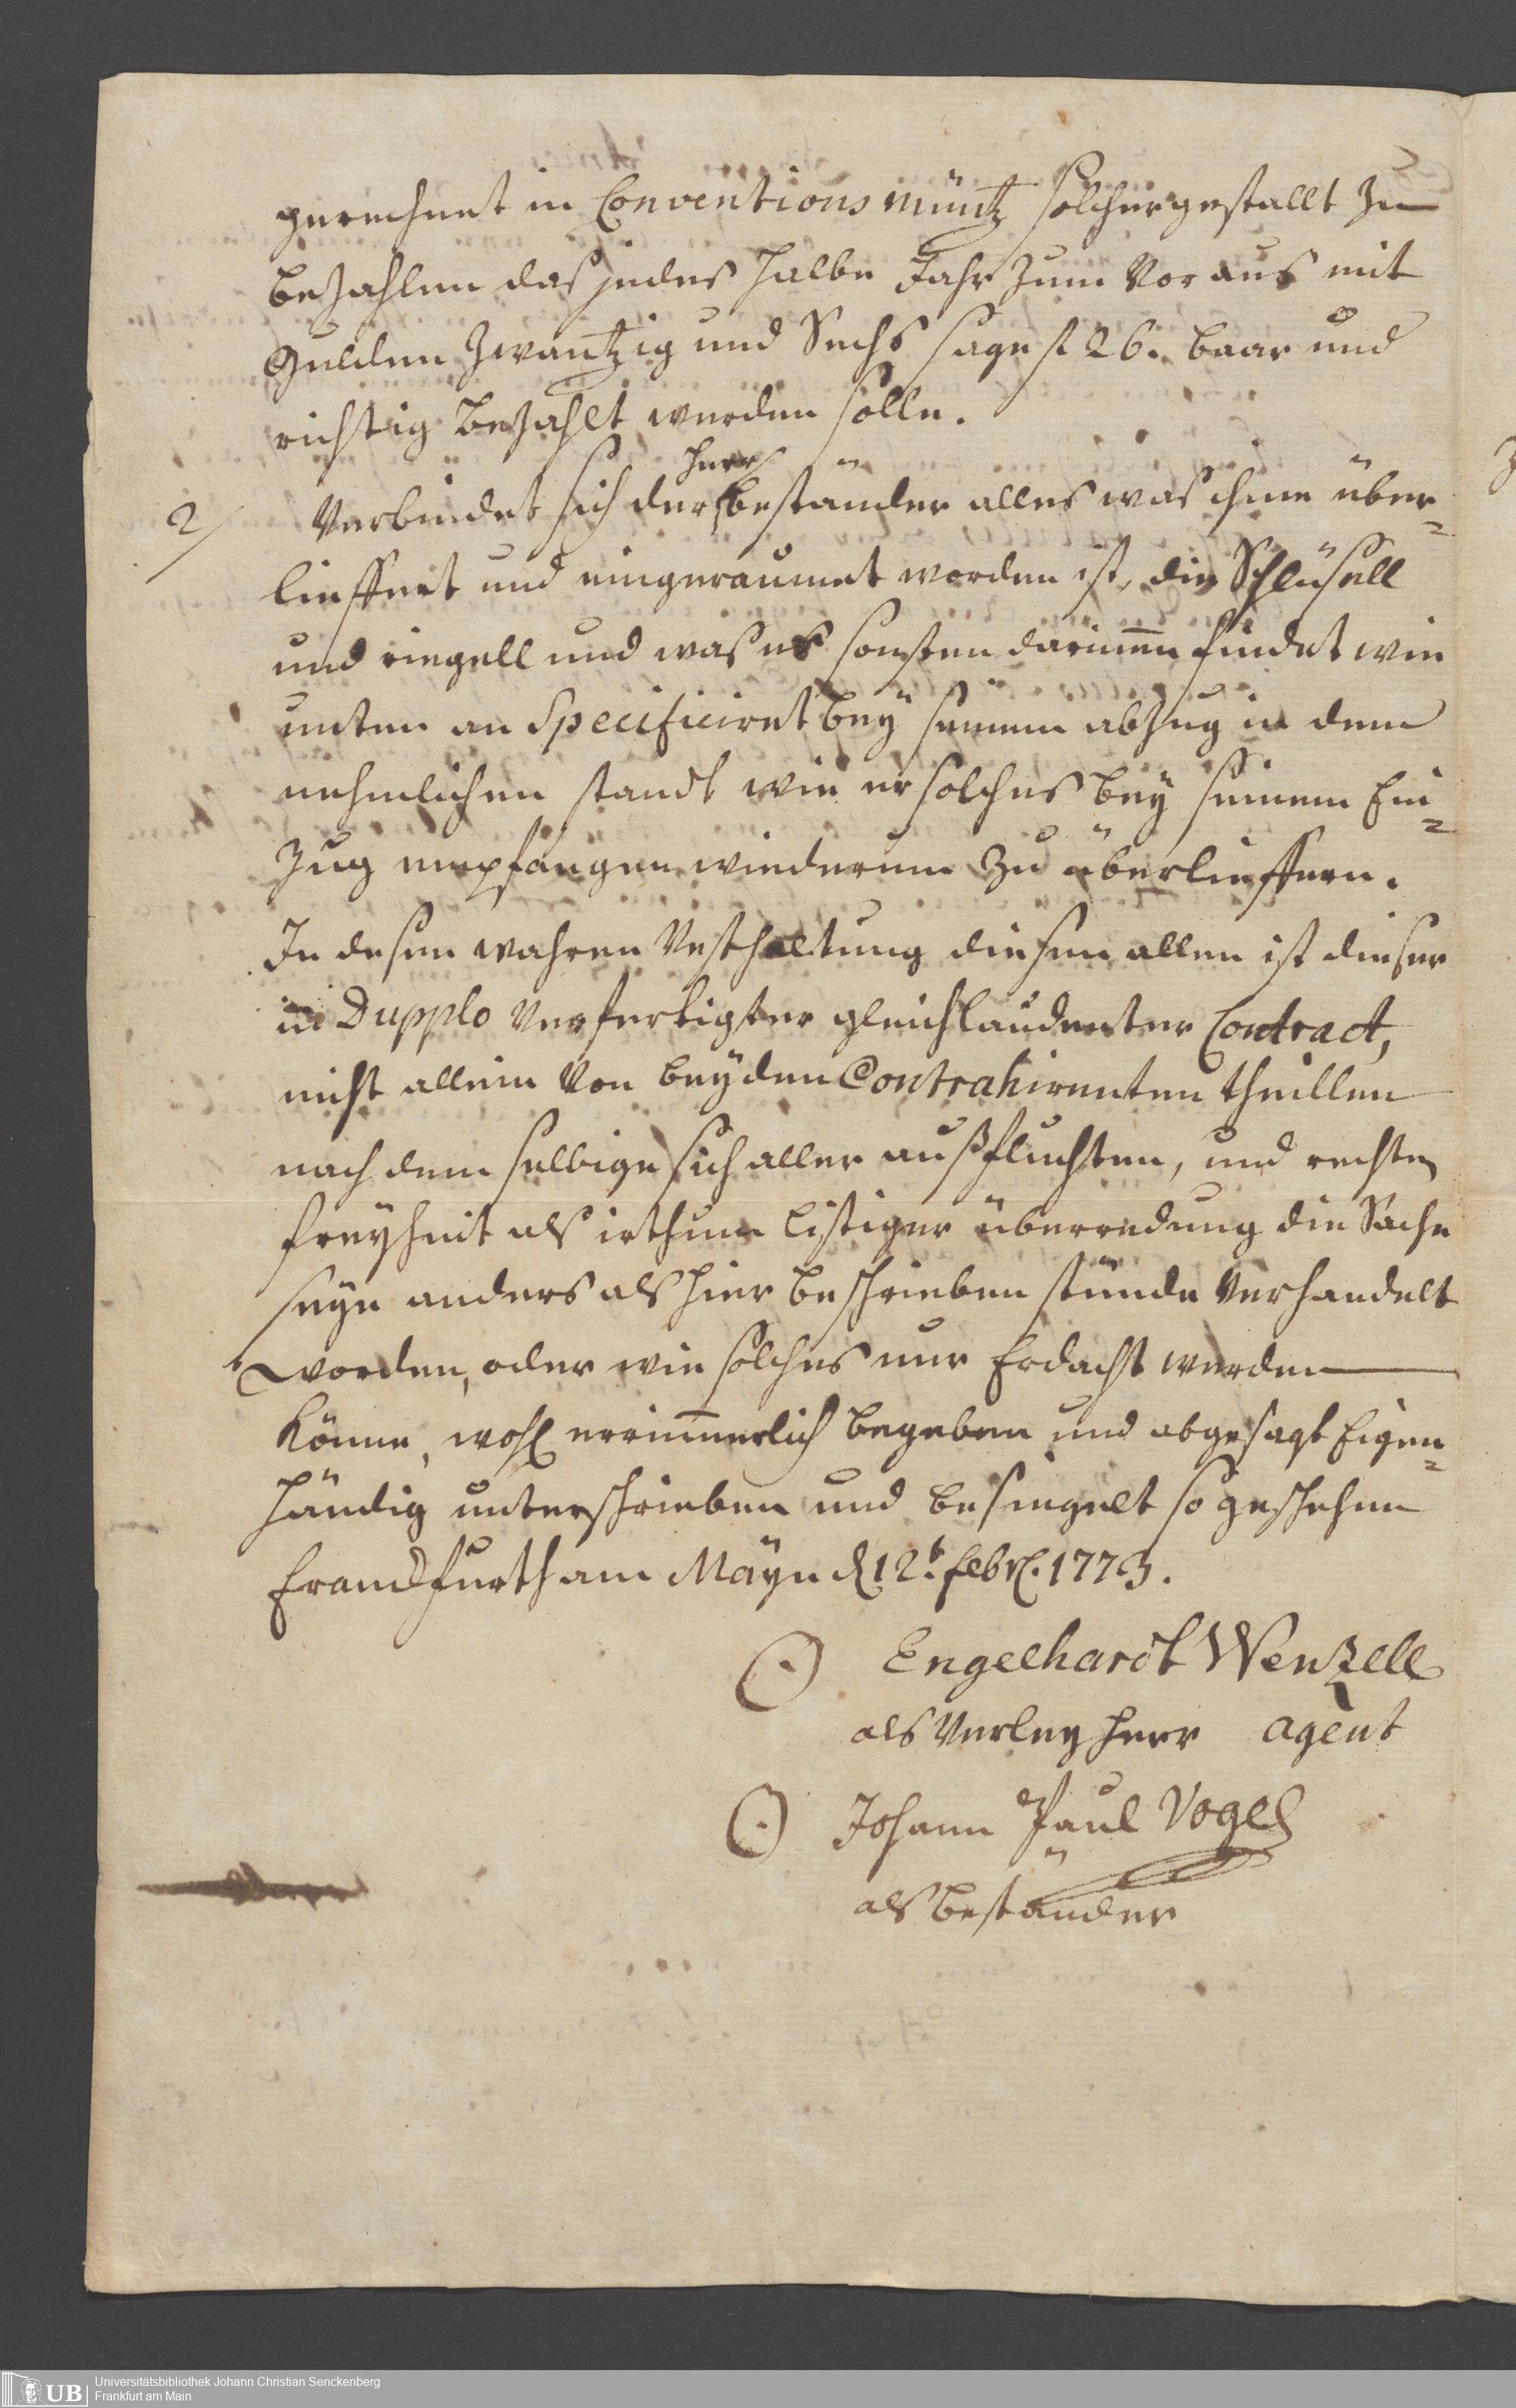 gerechnet in Conventions müntz solchergestallt zu
bezahlen das jedes halbe Jahr zum Voraus mit
Gulden Zwantzig und Sechs sage f 26. baar und
richtig bezahlt werden solle.
Herr
2/ Verbindet sich der beständer alles was ihme über=
lieffert und eingeraumet worden ist, die Schlüsell
und riegell und was es sonsten darinnen findet wie
unten an Specificiret bey seinem abzug in dem
nehmlichen standt wie er solches bey seinem Ein=
zug empfangen wiederum zu überlieffern.
In desen wahren Vesthaltung diesem allen ist dieser
in Dupplo Verfertigter gleichlaudenter Contract,
nicht allein Von beyden Contrahirenten theillen
nach dem selbige sich aller außfluchten, und rechten
freyheit als irthum listiger überredung die Sache
seye anders als hier beschrieben stünde Verhandelt
worden, oder wie solches nur Erdacht werden
könne, wohl erinnerlich begeben und abgesagt Eigen=
händig unterschrieben und besiegelt so geschehen
Franckfurth am Mayn d 12t. febr. 1773.
Engelhardt Wenzell
als Verleyherr agent
Johann Paul Vogel
als beständer
UB
Universitätsbibliothek Johann Christian Senckenberg
Frankfurt am Main